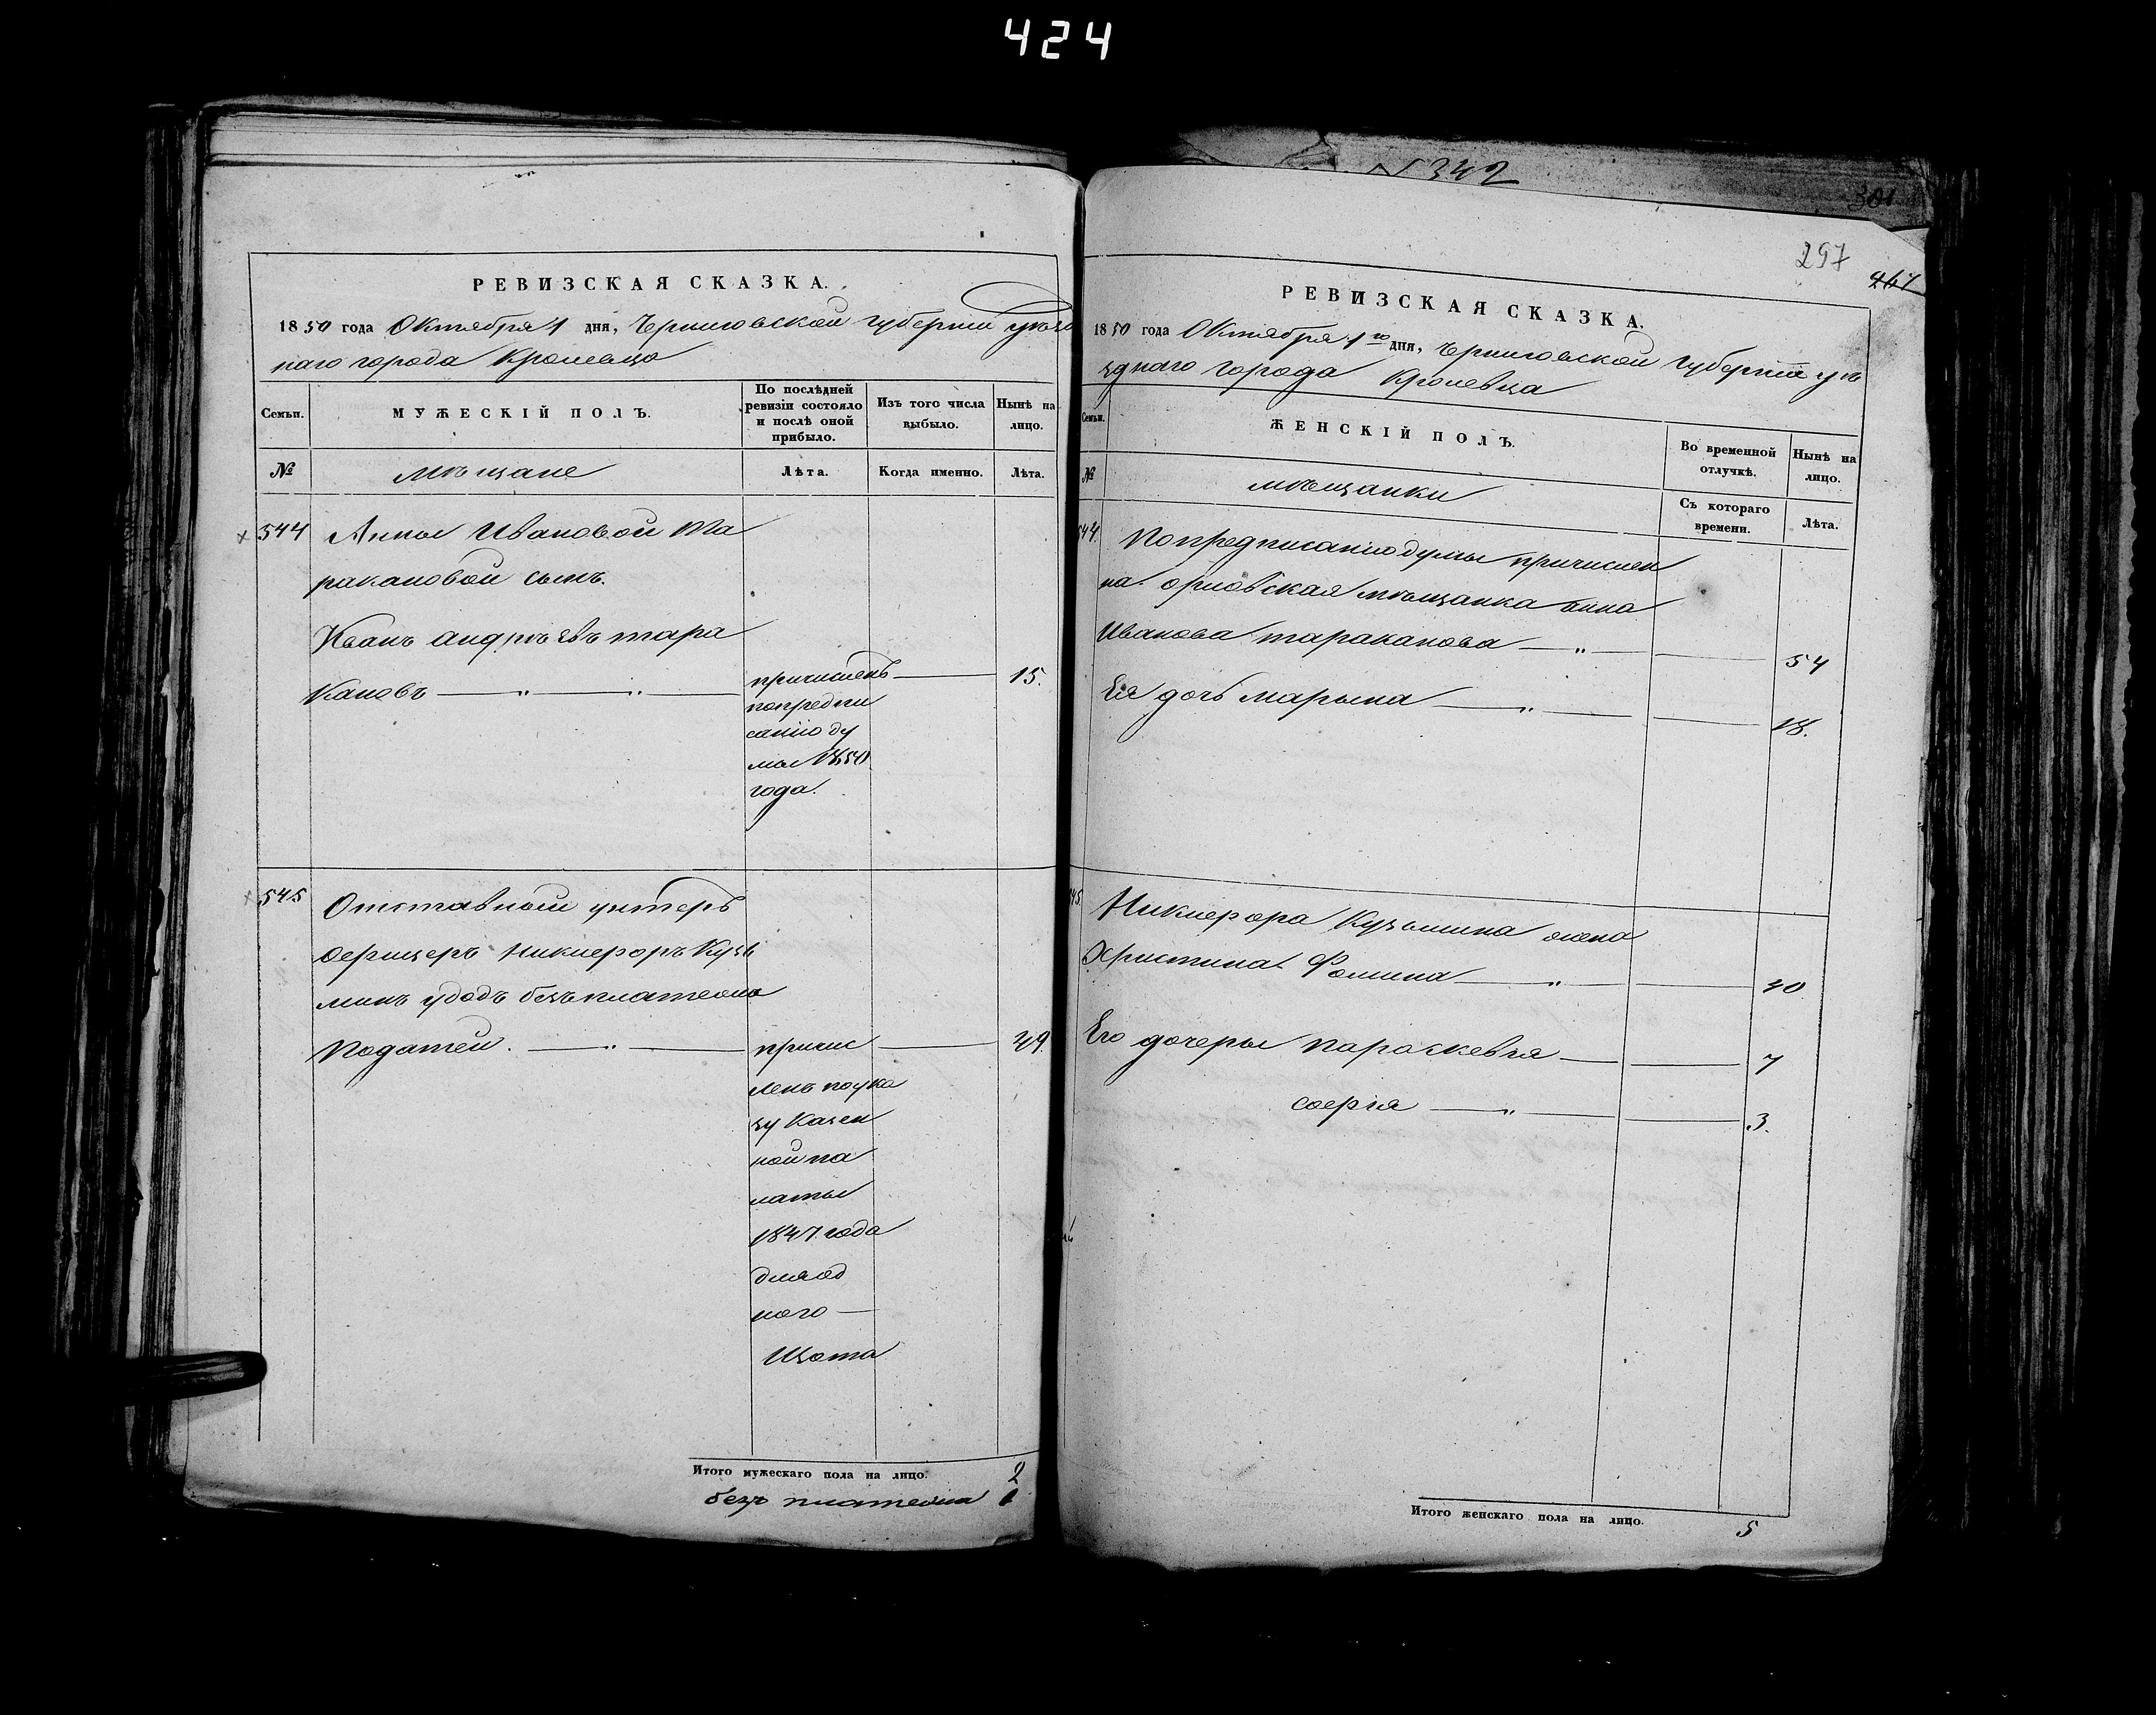 424
РЕВИЗСКАЯ СКАЗКА.
1850 года Октября 1 дня, Черниговской губернии уѣзд
наго города Кролевца
Семьи.
МУЖЕСКІЙ ПОЛЪ.
По послѣдней ревизіи состояло и послѣ оной прибыло.
Изъ того числа выбыло.
Нынѣ на лицо.
№
мѣщане
Лѣта.
Когда именно.
Лѣта.
544 Анны Ивановой Та
ракановой сынъ.
Иванъ андрѣевъ тара
кановъ — „ — „ — причисленъ — 15.
попредпи
санію ду
мы 1850
года.
545 Отставный унтеръ
офицеръ Никифоръ Кузь
минъ удодъ безъплатежа
податей. — „ — причис — 49.
ленъ поука
зу Казен
ной па
латы
1847 года
дляод
ного —
Щота
Итого мужескаго пола на лицо. 2
безъ платежа 1
N 342
301
297
467
РЕВИЗСКАЯ СКАЗКА.
1850 года Октября 1го дня, Черниговской губерніи уѣ
зднаго города Кролевца
Семьи.
ЖЕНСКІЙ ПОЛЪ.
Во временной отлучкѣ.
Нынѣ на лицо.
№
мѣщанки
Съ котораго времени.
Лѣта.
544. Попредписаніюдумы причислен
на орловская мѣщанка анна
Иванова тараканова — „ — 54
Ея дочь марьяна — „ — 18.
545 Никифора Кузьмина жена
Христина Фомина — „ — 40
Его дочеры параскевія — 7
софія — „ — 3.
Итого женскаго пола на лицо. 5